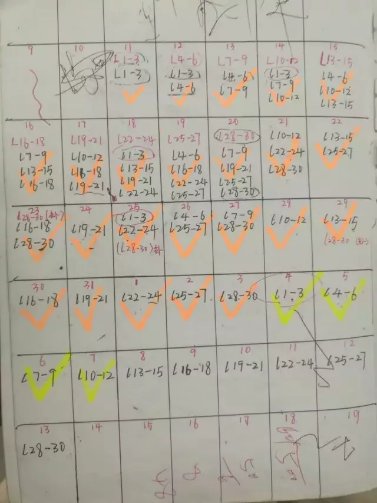 9 10 11 12 13 14 15
L1-3 L4-6 L7-9 L10-12 L13-15
L1-3 L1-3 L4-6 L1-3 L4-6
L4-6 L7-9 L7-9 L10-12
L10-12 L13-15
16 17 18 19 20 21 22
L16-18 L19-21 L22-24 L25-27 L28-30 L10-12 L13-15
L7-9 L10-12 L1-3 L4-6 L7-9 L22-24 L25-27
L13-15 L16-18 L13-15 L16-18 L19-21 L28-30
L16-18 L19-21 L19-21 L22-24 L25-27
L22-24 L25-27 L28-30
23 24 25 26 27 28 29
L28-30 L1-3 L4-6 L7-9 L10-12 L13-15
L16-18 L19-21 L22-24 L25-27 L28-30
L28-30 L28-30 L28-30
30 31 1 2 3 4 5
L16-18 L19-21 L22-24 L25-27 L28-30 L1-3 L4-6
6 7 8 9 10 11 12
L7-9 L10-12 L13-15 L16-18 L19-21 L22-24 L25-27
13 14 15 16 17 18 19
L28-30